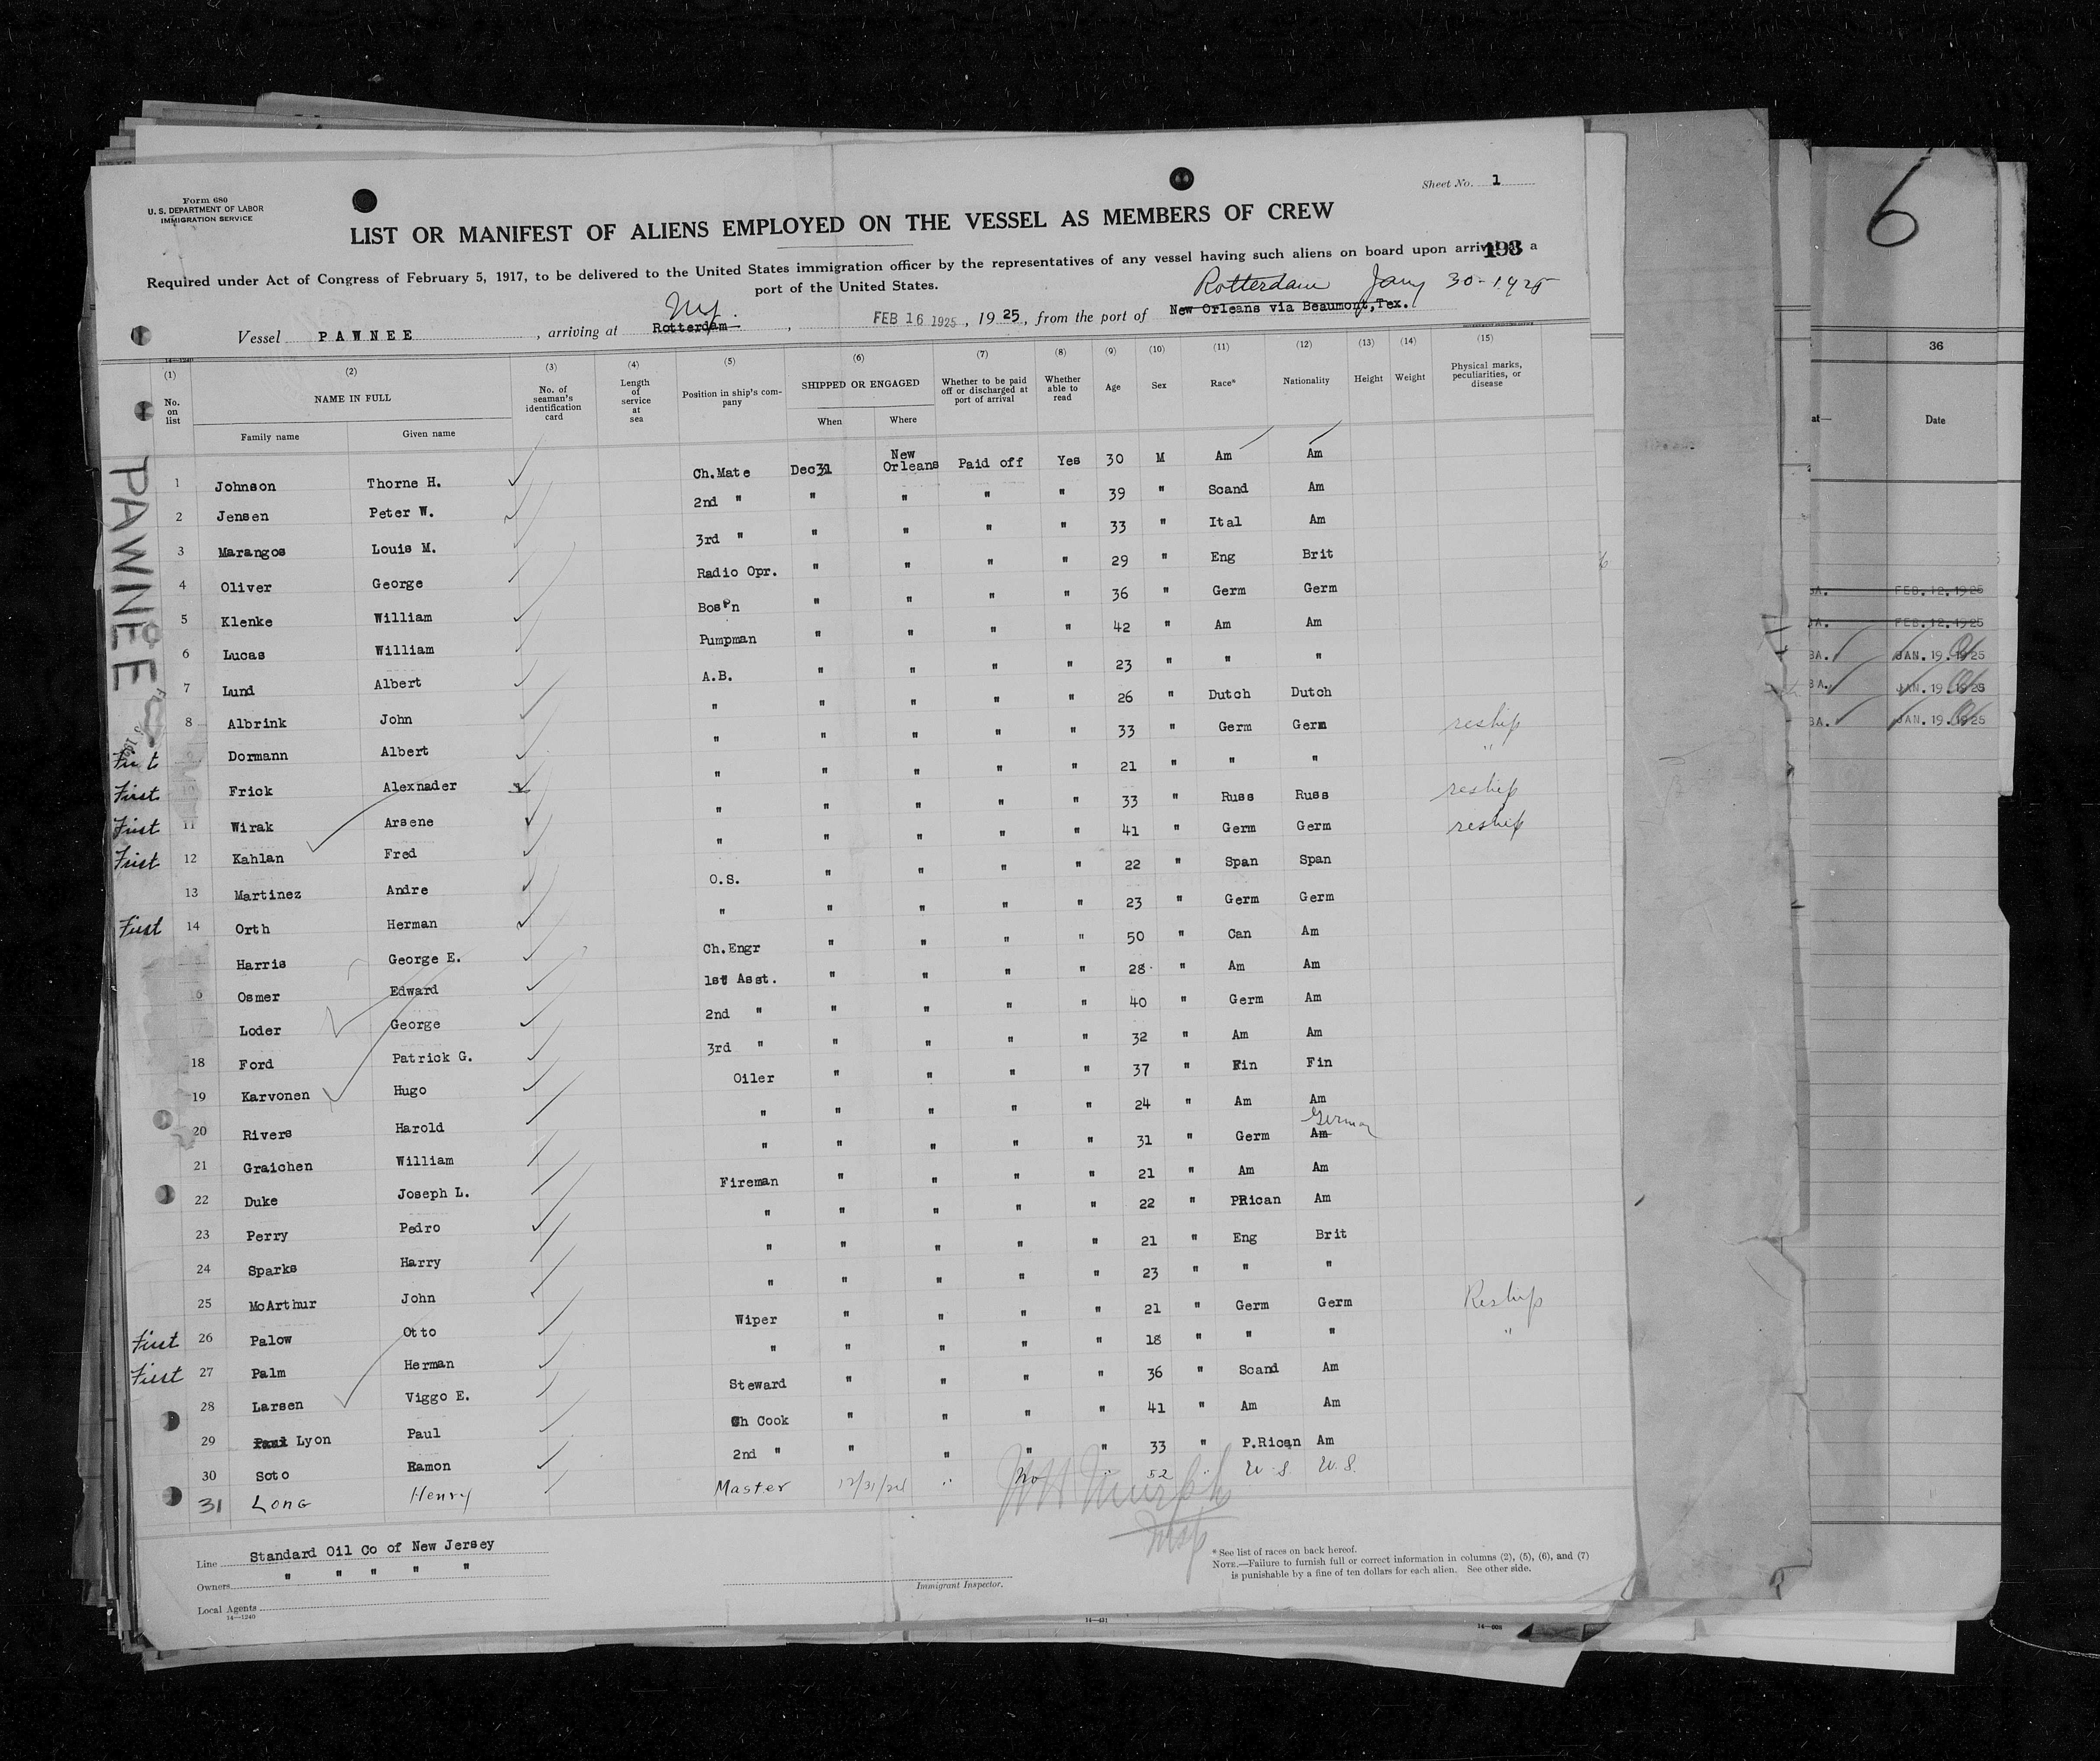 Form 680
U. S. DEPARTMENT OF LABOR
IMMIGRATION SERVICE
Sheet No. 1
6
LIST OR MANIFEST OF ALIENS EMPLOYED ON THE VESSEL AS MEMBERS OF CREW
193
Required under Act of Congress of February 5, 1917, to be delivered to the United States immigration officer by the representatives of any vessel having such aliens on board upon arrival at a
port of the United States.
Rotterdam Jany 30-1925
Ny.
Vessel PAWNEE, arriving at Rotterdam, FEB 16 1925, 1925, from the port of New Orleans via Beaumont, Tex.
14-1240
(1) (2) (3) (4) (5) (6) (7) (8) (9) (10) (11) (12) (13) (14) (15)
No. on list NAME IN FULL No. of seaman's identification card Length of service at sea Position in ship's company SHIPPED OR ENGAGED Whether to be paid off or discharged at port of arrival Whether able to read Age Sex Race* Nationality Height Weight Physical marks, peculiarities, or disease
Family name Given name When Where
PAWNEE
1 Johnson Thorne H. Ch.Mate Dec31 New Orleans Paid off Yes 30 M Am Am
2 Jensen Peter W. 2nd " " " " " 39 " Scand Am
3 Marangos Louis M. 3rd " " " " " 33 " Ital Am
4 Oliver George Radio Opr. " " " " 29 " Eng Brit
5 Klenke William Bos'n " " " " 36 " Germ Germ
6 Lucas William Pumpman " " " " 42 " Am Am
7 Lund Albert A.B. " " " " 23 " " "
8 Albrink John " " " " " 26 " Dutch Dutch
First Dormann Albert " " " " " 33 " Germ Germ reship
First Frick Alexnader " " " " " 21 " " " "
First 11 Wirak Arsene " " " " " 33 " Russ Russ reship
First 12 Kahlan Fred " " " " " 41 " Germ Germ reship
13 Martinez Andre O.S. " " " " 22 " Span Span
First 14 Orth Herman " " " " " 23 " Germ Germ
Harris George E. Ch.Engr " " " " 50 " Can Am
16 Osmer Edward 1st Asst. " " " " 28 " Am Am
Loder George 2nd " " " " " 40 " Germ Am
18 Ford Patrick G. 3rd " " " " " 32 " Am Am
19 Karvonen Hugo Oiler " " " " 37 " Fin Fin
20 Rivers Harold " " " " " 24 " Am Am
21 Graichen William " " " " " 31 " Germ Am German
22 Duke Joseph L. Fireman " " " " 21 " Am Am
23 Perry Pedro " " " " " 22 " PRican Am
24 Sparks Harry " " " " " 21 " Eng Brit
25 McArthur John " " " " " 23 " " "
First 26 Palow Otto Wiper " " " " 21 " Germ Germ Reship
First 27 Palm Herman " " " " " 18 " " " "
28 Larsen Viggo E. Steward " " " " 36 " Scand Am
29 Paul Lyon Paul Ch Cook " " " " 41 " Am Am
30 Soto Ramon 2nd " " " " " 33 " P.Rican Am
31 Long Henry Master 12/31/24 " No " 52 " U.S. U.S.
W H Murph
Insp
Line Standard Oil Co of New Jersey
Owners " " " " "
Local Agents
14-1240
Immigrant Inspector.
* See list of races on back hereof.
NOTE.—Failure to furnish full or correct information in columns (2), (5), (6), and (7)
is punishable by a fine of ten dollars for each alien. See other side.
14-431
14-608
36
at—
Date
BA. FEB.12.1925
BA. FEB.12.1925
BA. JAN.19.1925
BA. JAN.19.1925
BA. JAN.19.1925